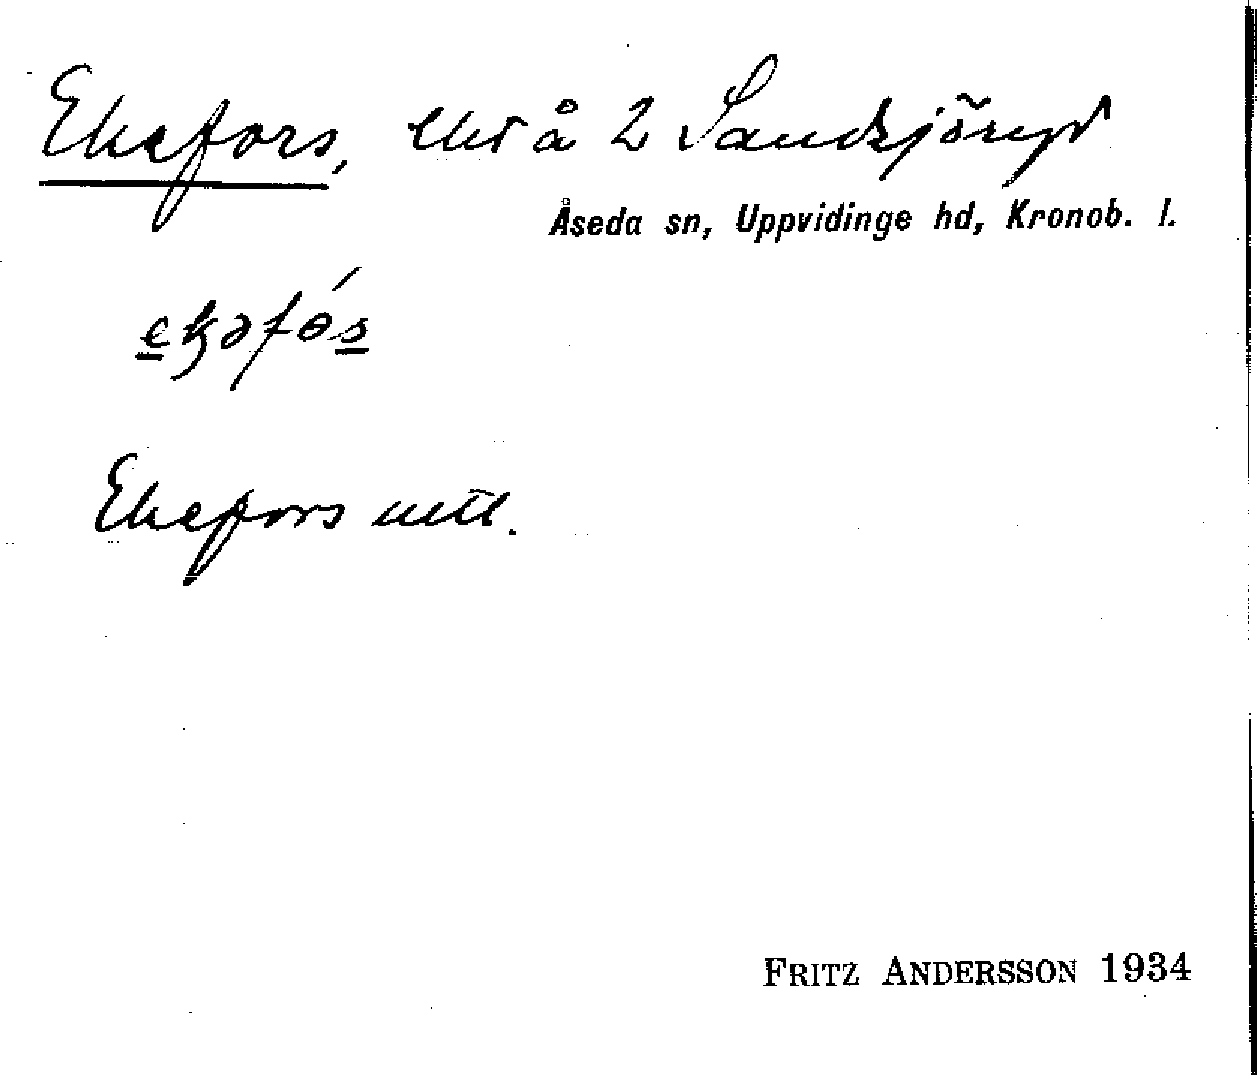 Ekefors, lht å 2 Sandsjöryd
Åseda sn, Uppvidinge hd, Kronob. l.
Ekefors
FRITZ ANDERSSON 1934